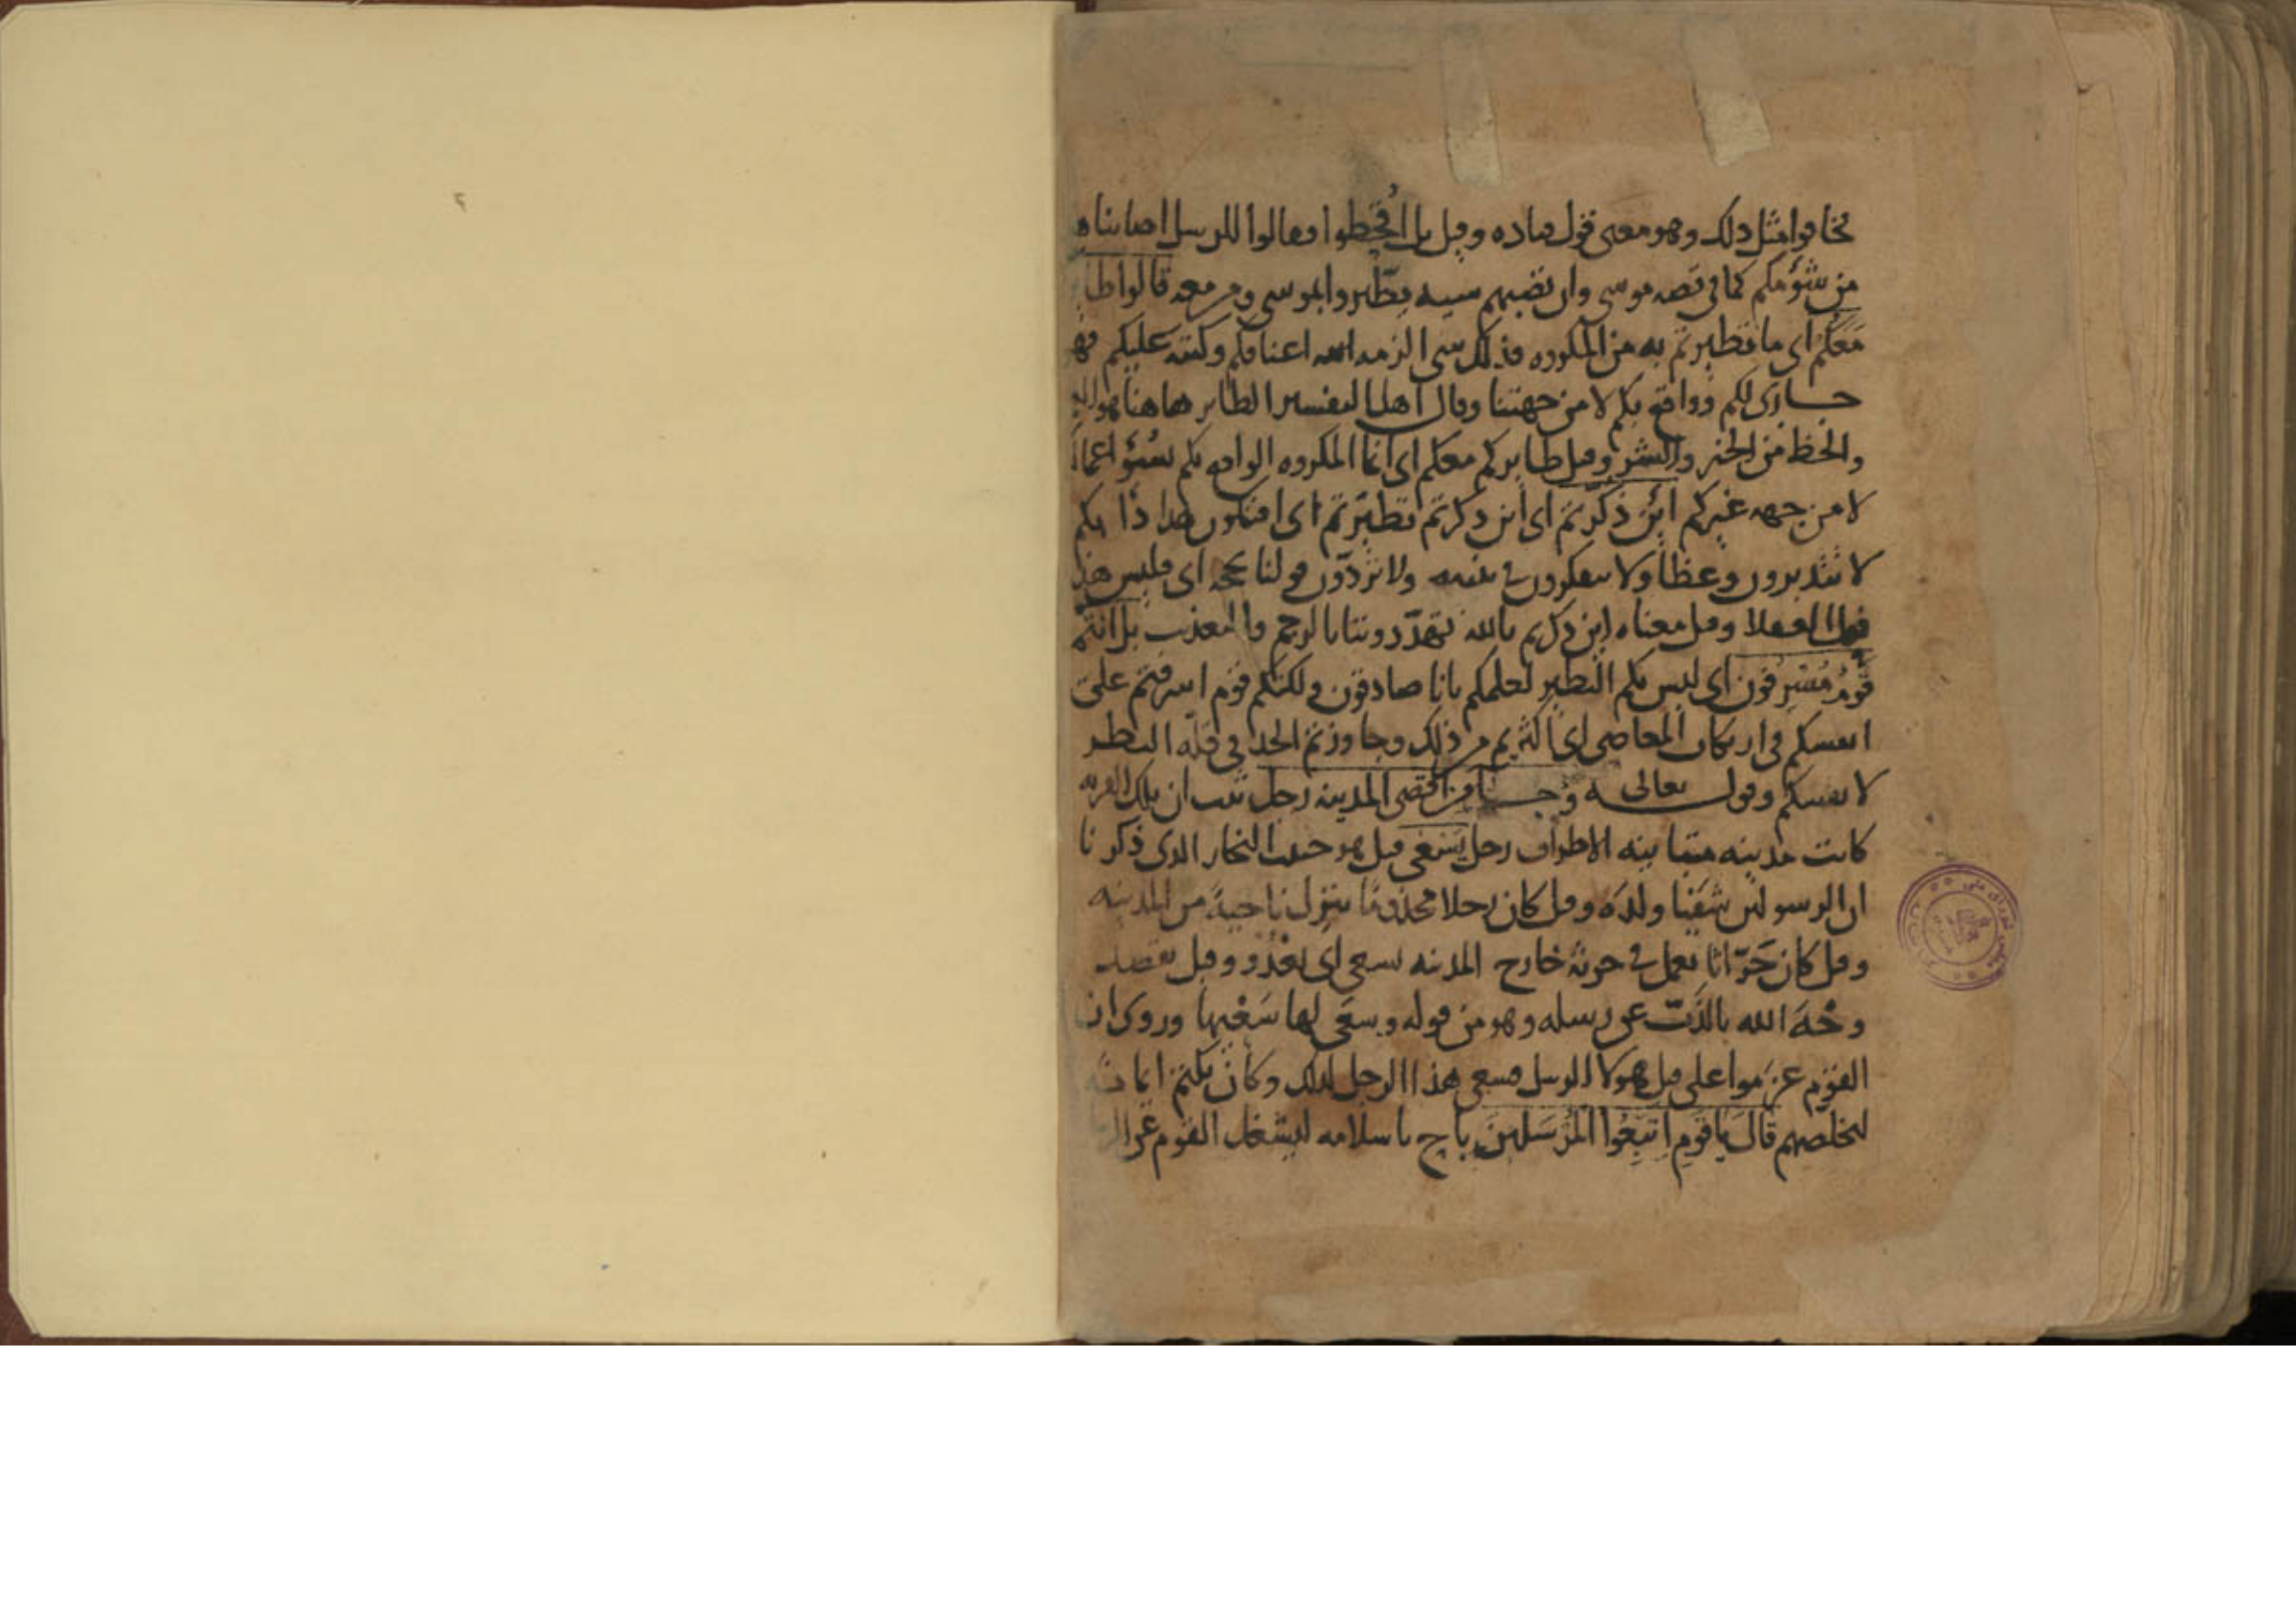 فخافوا مثل ذلك وهو معنى قول قتاده وقيل بل اقحطوا وقالوا للرسل اصابنا
من شؤمكم كما فى قصه موسى وان تصبهم سيئه يطّيروا بموسى ومن معه قالوا
معكم اى ما تطيرتم به من المكروه فذلك شى الزمه الله اعناقكم وكتبه عليكم فهو
جار لكم وواقع بكم لا من جهتنا وقال اهل التفسير الطاير هاهنا هو
والحظ من الخير والشر وقيل طايركم معكم اى انما المكروه الواقع بكم بسؤ
لا من جهه غيركم ائن ذكّرتم اى ائن ذكرتم تطيّرتم اى افيكون هذا
لا تتدبرون وعظا ولا تتفكرون فى ولا تردّون قولنا بحجه اى فليس هذا
وقيل معناه اين ذكرتم بالله تهدّدوننا بالرجم والتعذيب بل انتم
قومٌ مسرفون اى ليس بكم التطير لعلمكم بانا صادقون ولكنكم قوم اسرفتم على
انفسكم فى ارتكاب المعاصى اى اكثرتم من ذلك وجاوزتم الحد فى قلّه النظر
لانفسكم وقوله تعالى وجا من اقصى المدينه رجل ثبت ان تلك القريه
كانت مدينه متباينه الاطراف رجل يسعى قيل هو حبيب النجار الذى ذكرنا
ان الرسولين شفيا ولده وقيل كان رجلا مجذومًا ينزل ناحيةً من المدينه
وقيل كان حرّاثا يعمل فى حرثه خارج المدينه يسعى اى يغدو وقيل يقصد
وجه الله بالذّب عن رسله وهو من قوله وسعى لها سعيها وروى ان
القوم عزموا على قتل هولا الرسل فسعى هذا الرجل لذلك وكان يكتم ايمانه
ليخلصهم قال يا قوم اتبعوا المرسلين باح باسلامه ليشغل القوم عن